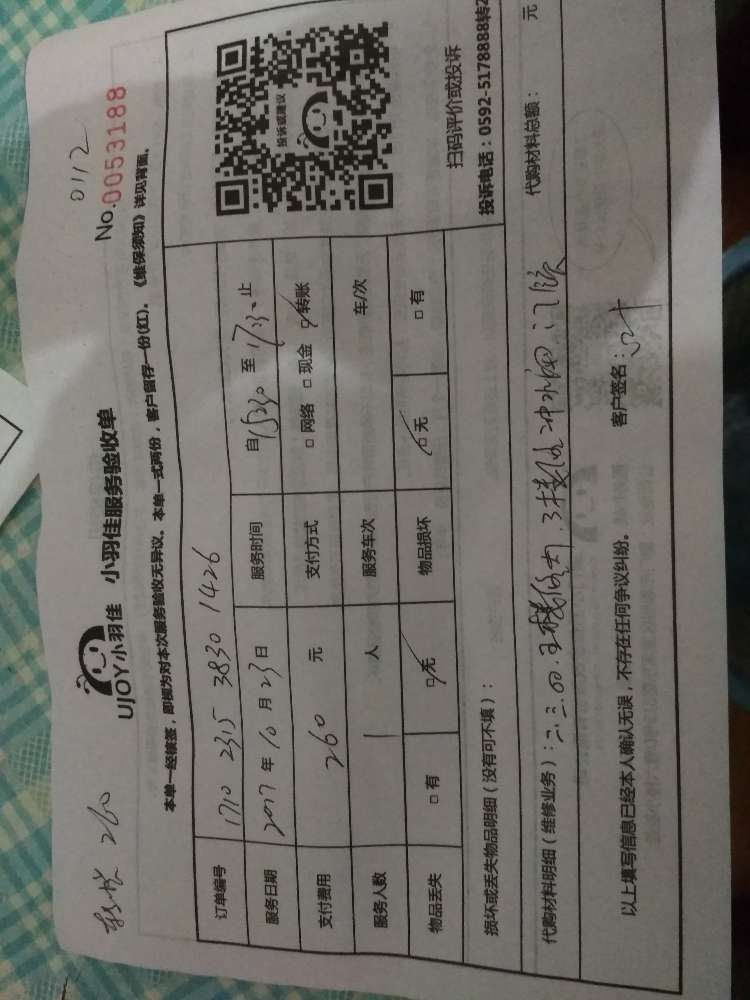 转账 260
0112
UJOY小羽佳 小羽佳服务验收单
No.0053188
本单一经核签，即视为对本次服务验收无异议。本单一式两份，客户留存一份(红)。《维保须知》详见背面。
订单编号 1710 2315 3830 1426
服务日期 2017年10月23日 服务时间 自15:30 至17:30止
支付费用 260 元 支付方式 □网络 □现金 ☑转账
服务人数 1 人 服务车次 车/次
物品丢失 □有 ☑无 物品损坏 ☑无 □有
投诉或建议
扫码评价或投诉
投诉电话：0592-5178888转2
损坏或丢失物品明细（没有可不填）：
代购材料明细（维修业务）：
代购材料总额： 元
以上填写信息已经本人确认无误，不存在任何争议纠纷。 客户签名：